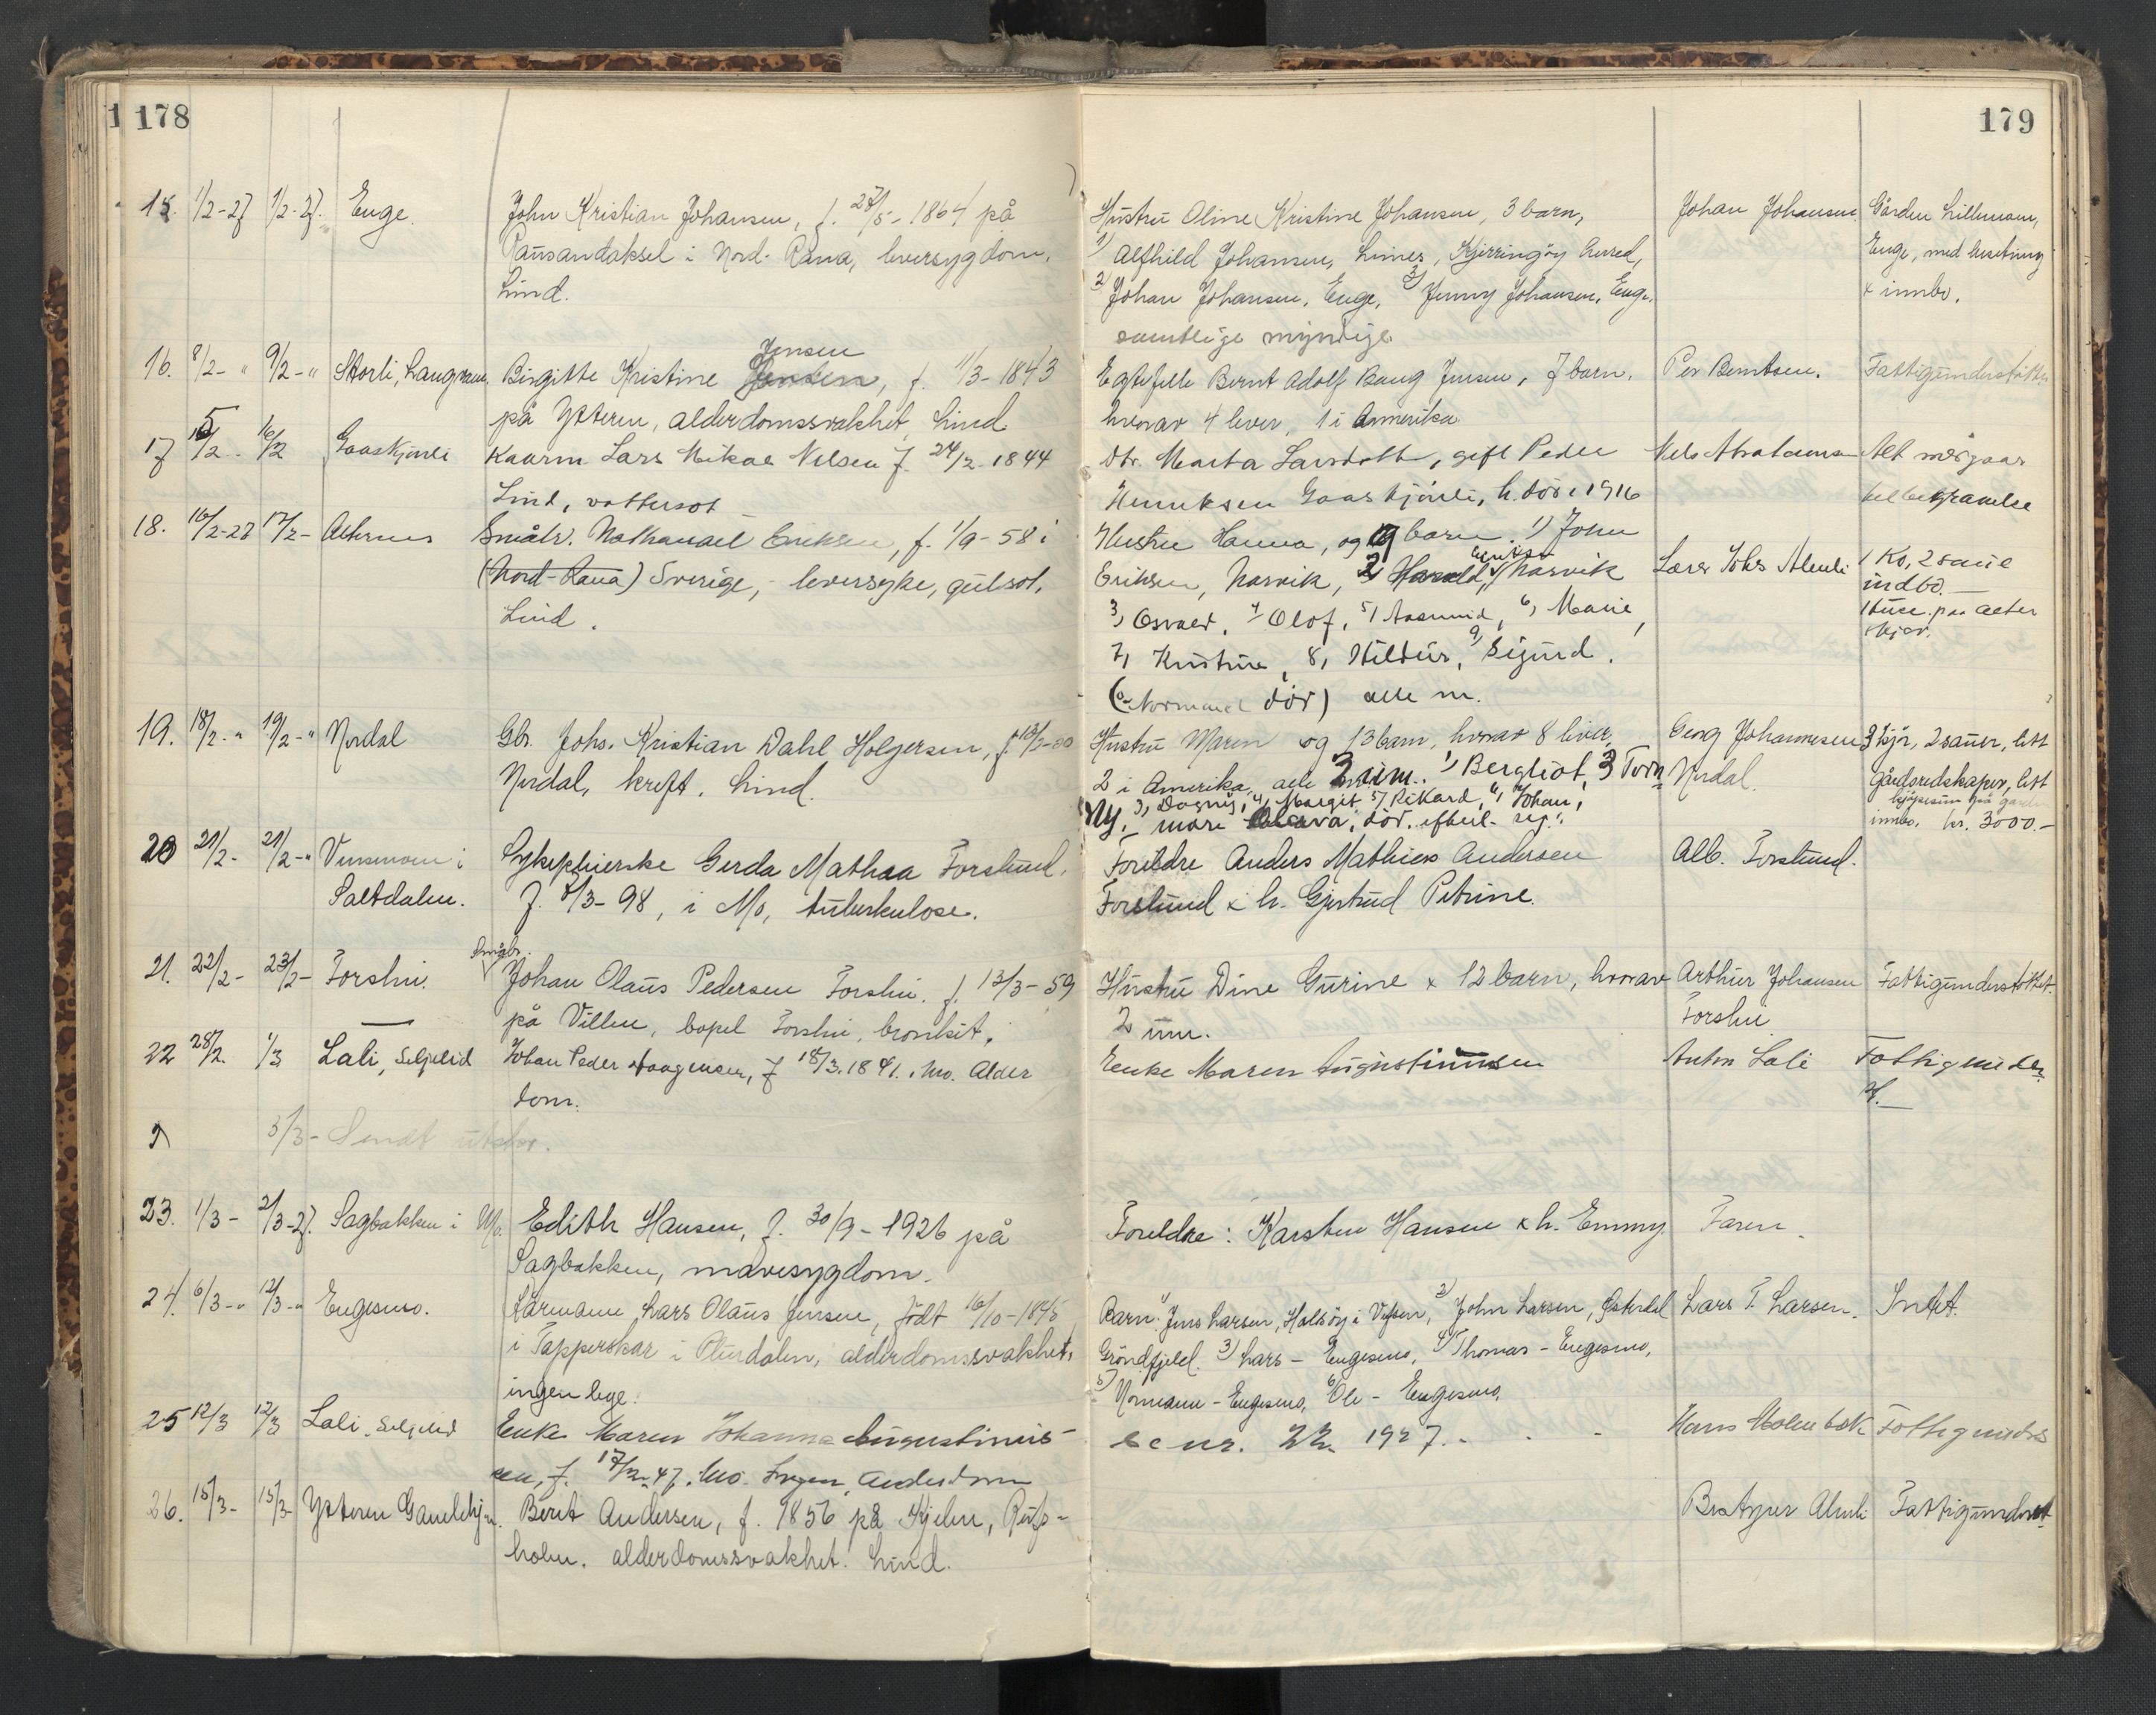 178
15. 1/2-27 1/2-27. Enge. John Kristian Johansen, f. 27/5-1864 på
Pausandaksel i Nord-Rana, leversygdom.
Lind.
16. 8/2- " 9/2- " Storli, Langvann. Birgitte Kristine Jensen, f. 11/3-1843
på Ytteren, alderdomssvakhet, Lind
17 15/2 - 16/2 Gaaskjønli Kaarm Lars Mikal Nilsen f. 24/12-1844
Lind, vattersot
18. 16/2-27 17/2- Alternes Småbr. Nathanael Eriksen, f. 1/9-58 i
(Nord-Rana) Sverige, leversyke, gulsot.
Lind.
19. 18/2- " 19/2- " Nordal Gbr. Johs. Kristian Dahl Holgersen,
Nordal, kreft. Lind.
20 21/2- 21/2- " Vensmoen i Sykepleierske Gerda Mathea Forslund,
Saltdalen. f. 8/3-98, i Mo, tuberkulose.
21. 22/2- 23/2- Forshei. Småbr. Johan Olaus Pedersen Forshei. f. 13/3-59
på Villen, bopel Forshei, bronkit.
22 28/2. 1/3 Lali, Seljelid Johan Peder Haagensen, f 18/3.1841. Mo. Alder
dom.
3/3- Sendt utskr.
23. 1/3- 2/3-27. Sagbakken i Mo. Edith Hansen, f. 30/9-1926 på
Sagbakken, mavesygdom.
24. 6/3- " 12/3- " Engesmo. Kårmann Lars Olaus Jensen, født 16/10-1845
i Tapperskar i Plurdalen, alderdomssvakhet,
ingen lege.
25 12/3 12/3 Lali, Seljelid Enke Maren Johanna Augustinus-
sen, f. 17/2-47. Mo. Ingen, Alderdom
26. 15/3- 15/3- Ytteren Gamlehjem. Berit Andersen, f. 1856 på Kjelen, Røfs-
holm. alderdomssvakhet. Lind.
179
Hustru Oline Kristine Johansen, 3 barn, Johan Johansen. Gården Lillemoen,
1) Alfhild Johansen, Limes, Kjerringøy herred, Enge, med besetning
2) Johan Johansen, Enge, 3) Jenny Johansen, Enge. & innbo.
samtlige myndige.
Egtefelle Bernt Adolf Bang Jensen, 7 barn, Per Berntsen. Fattigunderstøttet
hvorav 4 lever, 1 i Amerika
Dtr. Marta Larsdotter, gift Peder Nils Abrahamsen Alt medgaar
Henriksen Gaaskjønli, h. død i 1916 til begravelse
Hustru Hanna, og 9 barn. 1) John
Eriksen, Narvik, 2) Harald Eriksen, Narvik Lærer Johs Alenli 1 Ko, 2 sauer
3) Osvald, 4) Olof, 5) Aasmund, 6) Marie, indbo.
1 Huse paa Alter
7, Kristine, 8, Hildur, 9) Sigurd.
(Normand død) alle m.
Hustru Maren og 13 barn, hvorav 8 lever, Georg Johannesen 3 kjør, 2 sauer, litt
2 i Amerika, alle 3 um. 1) Bergliot, Nordal gårdsredskaper, litt
3, Dagny, 4, Margit 5) Rikard, 6, Johan, innbo. kr. 3000.-
Foreldre Anders Mathias Andersen Alb. Forslund.
Forslund & h. Gjertrud Petrine.
Hustru Dine Gurine & 12 barn, hvorav Arthur Johansen Fattigunderstøttet.
2 um. Forshei
Enke Maren Augustinussen Anton Lali Fattigunder
st.
Foreldre: Karsten Hansen & h. Emmy. Faren.
Barn: 1) Jens Larsen, Halsøy i Vefsen, 2) John Larsen, Østerdal Lars T. Larsen. Intet.
Grøndfjeld. 3) Lars - Engesmo, 4) Thomas - Engesmo,
5) Normann - Engesmo, 6) Ole - Engesmo.
Se nr. 22 1927. - - Hans Molenbek Fattigunders
Bestyrer Alenli Fattigunderst